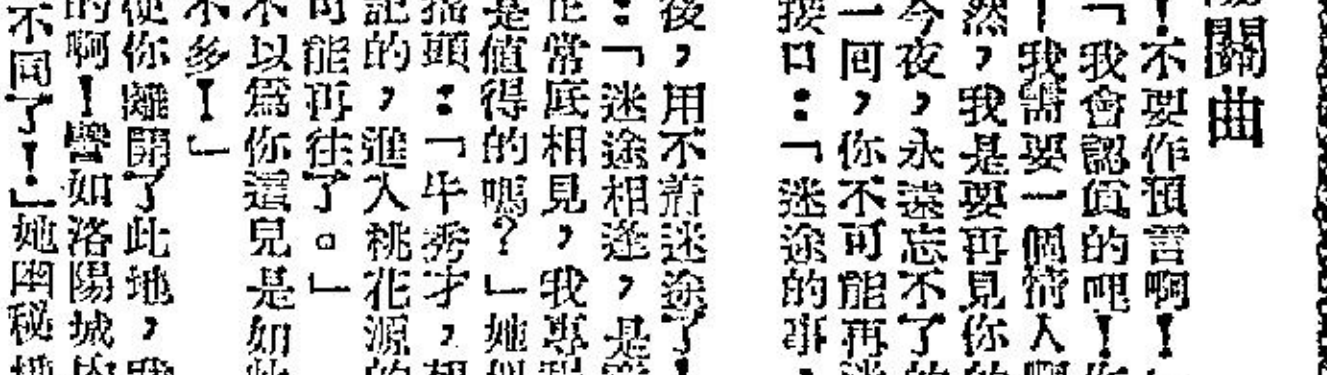 關曲
！不要作預言啊！
「我會認值的吧！
我需要一個情人
然，我是要再見你
今夜，永遠忘不了的
一回，你不可能再
接口：「迷途的事
後，用不着迷途了！
：「迷途相逢，是
常底相見，我專
是值得的嗎？」她
搖頭：「牛秀才，相
記的，進入桃花源的
可能再往了。」
不以爲你這兒是如
不多！」
使你離開了此地，我
的啊！譬如洛陽城
不同了！」她幽秘